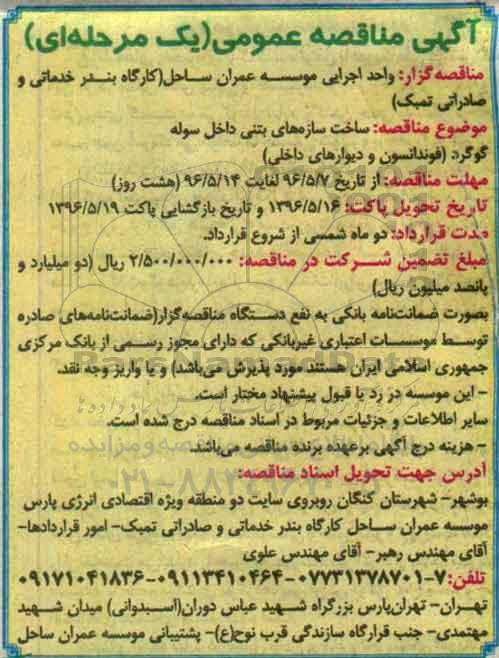 آگهی مناقصه عمومی(یک مرحله‌ای)
مناقصه‌گزار: واحد اجرایی موسسه عمران ساحل(کارگاه بندر خدماتی و
صادراتی تمبک)
موضوع مناقصه: ساخت سازه‌های بتنی داخل سوله
گوگرد (فوندانسون و دیوارهای داخلی)
مهلت مناقصه: از تاریخ ۹۶/۵/۷ لغایت ۹۶/۵/۱۴ (هشت روز)
تاریخ تحویل پاکت: ۱۳۹۶/۵/۱۶ و تاریخ بازگشایی پاکت ۱۳۹۶/۵/۱۹
مدت قرارداد: دو ماه شمسی از شروع قرارداد.
مبلغ تضمین شرکت در مناقصه: ۲/۵۰۰/۰۰۰/۰۰۰ ریال (دو میلیارد و
پانصد میلیون ریال)
بصورت ضمانت‌نامه بانکی به نفع دستگاه مناقصه‌گزار(ضمانت‌نامه‌های صادره
توسط موسسات اعتباری غیربانکی که دارای مجوز رسمی از بانک مرکزی
جمهوری اسلامی ایران هستند مورد پذیرش می‌باشد) و یا واریز وجه نقد.
- این موسسه در رد یا قبول پیشنهاد مختار است.
سایر اطلاعات و جزئیات مربوط در اسناد مناقصه درج شده است.
- هزینه درج آگهی برعهده برنده مناقصه می‌باشد.
آدرس جهت تحویل اسناد مناقصه:
بوشهر- شهرستان کنگان روبروی سایت دو منطقه ویژه اقتصادی انرژی پارس
موسسه عمران ساحل کارگاه بندر خدماتی و صادراتی تمبک- امور قراردادها-
آقای مهندس رهبر- آقای مهندس علوی
تلفن: ۷-۰۷۷۳۱۳۷۸۷۰۱-۰۹۱۱۳۴۱۰۴۶۴-۰۹۱۷۱۰۴۱۸۳۶
تهران- تهران‌پارس بزرگراه شهید عباس دوران(اسبدوانی) میدان شهید
مهتمدی- جنب قرارگاه سازندگی قرب نوح(ع)- پشتیبانی موسسه عمران ساحل